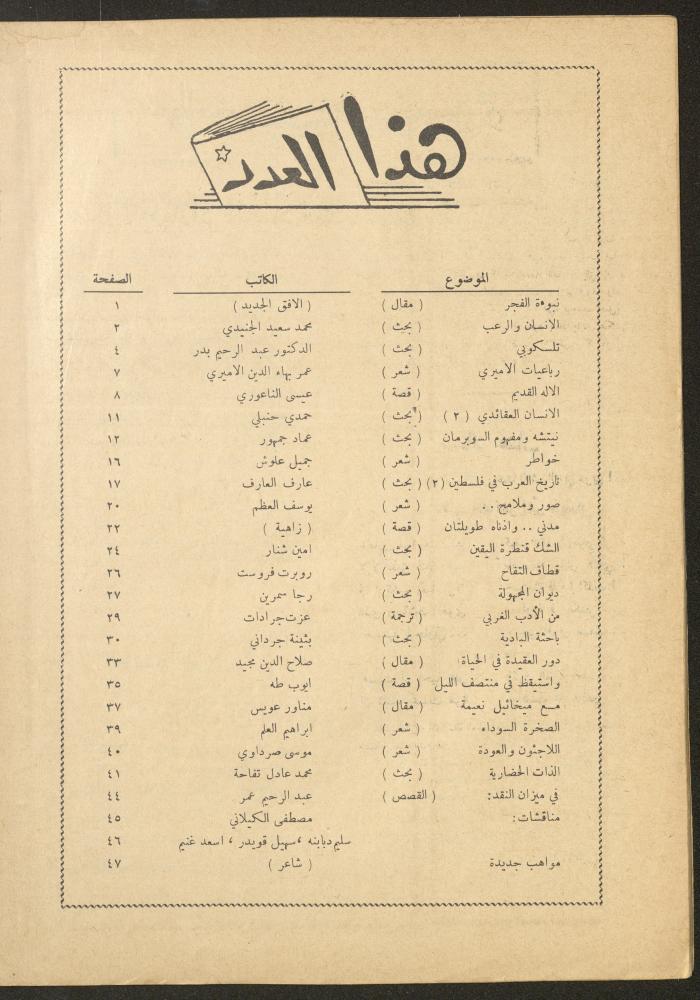 هذا العدد
الموضوع الكاتب الصفحة
نبوءة الفجر ( مقال ) ( الافق الجديد ) ١
الانسان والرعب ( بحث ) محمد سعيد الجنيدي ٢
تلسكوبي ( بحث ) الدكتور عبد الرحيم بدر ٤
رباعيات الاميري ( شعر ) عمر بهاء الدين الاميري ٧
الاله القديم ( قصة ) عيسى الناعوري ٨
الانسان العقائدي ( ٢ ) ( بحث ) حمدي حنبلي ١١
نيتشه ومفهوم السوبرمان ( بحث ) عماد جمهور ١٢
خواطر ( شعر ) جميل علوش ١٦
تاريخ العرب في فلسطين (٢) ( بحث ) عارف العارف ١٧
صور وملامح . . ( شعر ) يوسف العظم ٢٠
مدني . . واذناه طويلتان ( قصة ) ( زاهية ) ٢٢
الشك قنطرة اليقين ( بحث ) امين شنار ٢٤
قطاف التفاح ( شعر ) روبرت فروست ٢٦
ديوان المجهولة ( بحث ) رجا سمرين ٢٧
من الأدب الغربي ( ترجمة ) عزت جرادات ٢٩
باحثة البادية ( بحث ) بثينة جرداني ٣٠
دور العقيدة في الحياة ( مقال ) صلاح الدين مجيد ٣٣
واستيقظ في منتصف الليل ( قصة ) ايوب طه ٣٥
مع ميخائيل نعيمة ( مقال ) مناور عويس ٣٧
الصخرة السوداء ( شعر ) ابراهيم العلم ٣٩
اللاجئون والعودة ( شعر ) موسى صرداوي ٤٠
الذات الحضارية ( بحث ) محمد عادل تفاحة ٤١
في ميزان النقد: ( القصص ) عبد الرحيم عمر ٤٤
مناقشات: مصطفى الكيلاني ٤٥
سليم دبابنه ، سهيل قويدر ، اسعد غنيم ٤٦
مواهب جديدة ( شاعر ) ٤٧